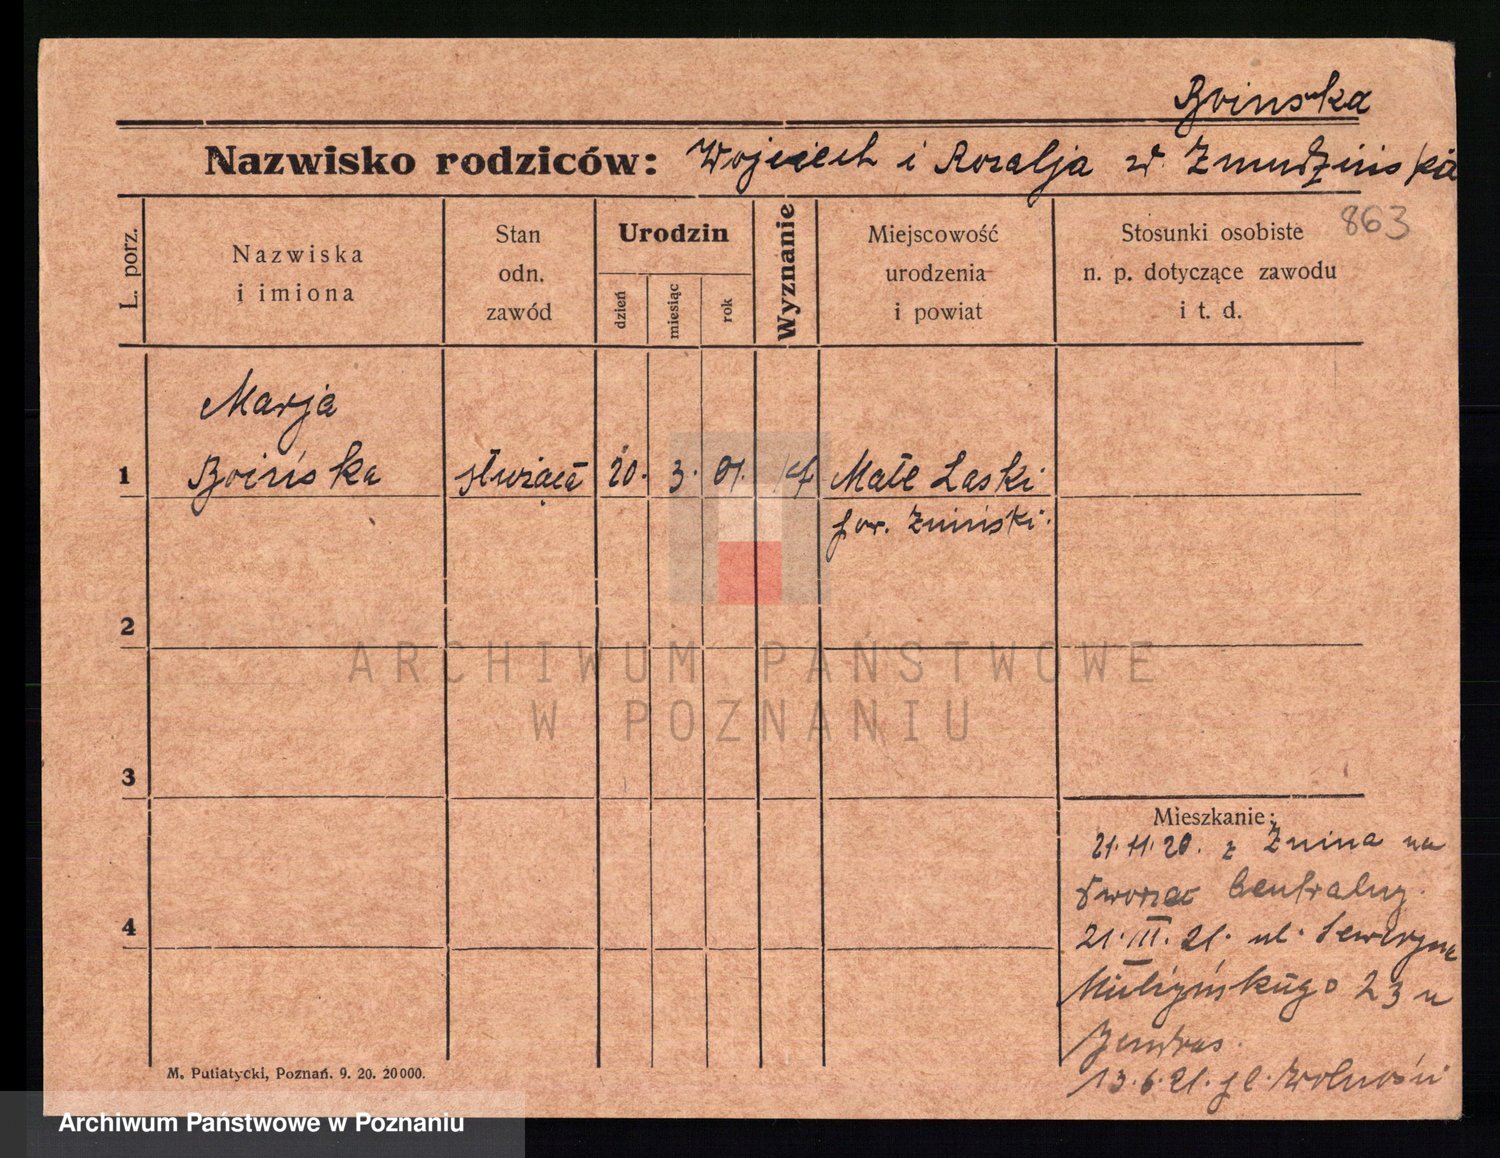 Boinska
Nazwisko rodziców: Wojciech i Rozalja z d. Żmudzińska
863
L. porz.
Nazwiska
i imiona
Stan
odn.
zawód
Urodzin
dzień
miesiąc
rok
Wyznanie
Miejscowość
urodzenia
i powiat
Stosunki osobiste
n. p. dotyczące zawodu
i t. d.
Marja
1 Boińska służąca 20. 3. 01. kat Małe Laski
pow. Żniński.
2
3
4
Mieszkanie:
21.11.20. z Żnina na
Dworzec Centralny.
21.III.21. ul. Seweryna
23 u
13.6.21. pl. Wolności
M. Putiatycki, Poznań. 9. 20. 20000.
ARCHIWUM PAŃSTWOWE
W POZNANIU
Archiwum Państwowe w Poznaniu